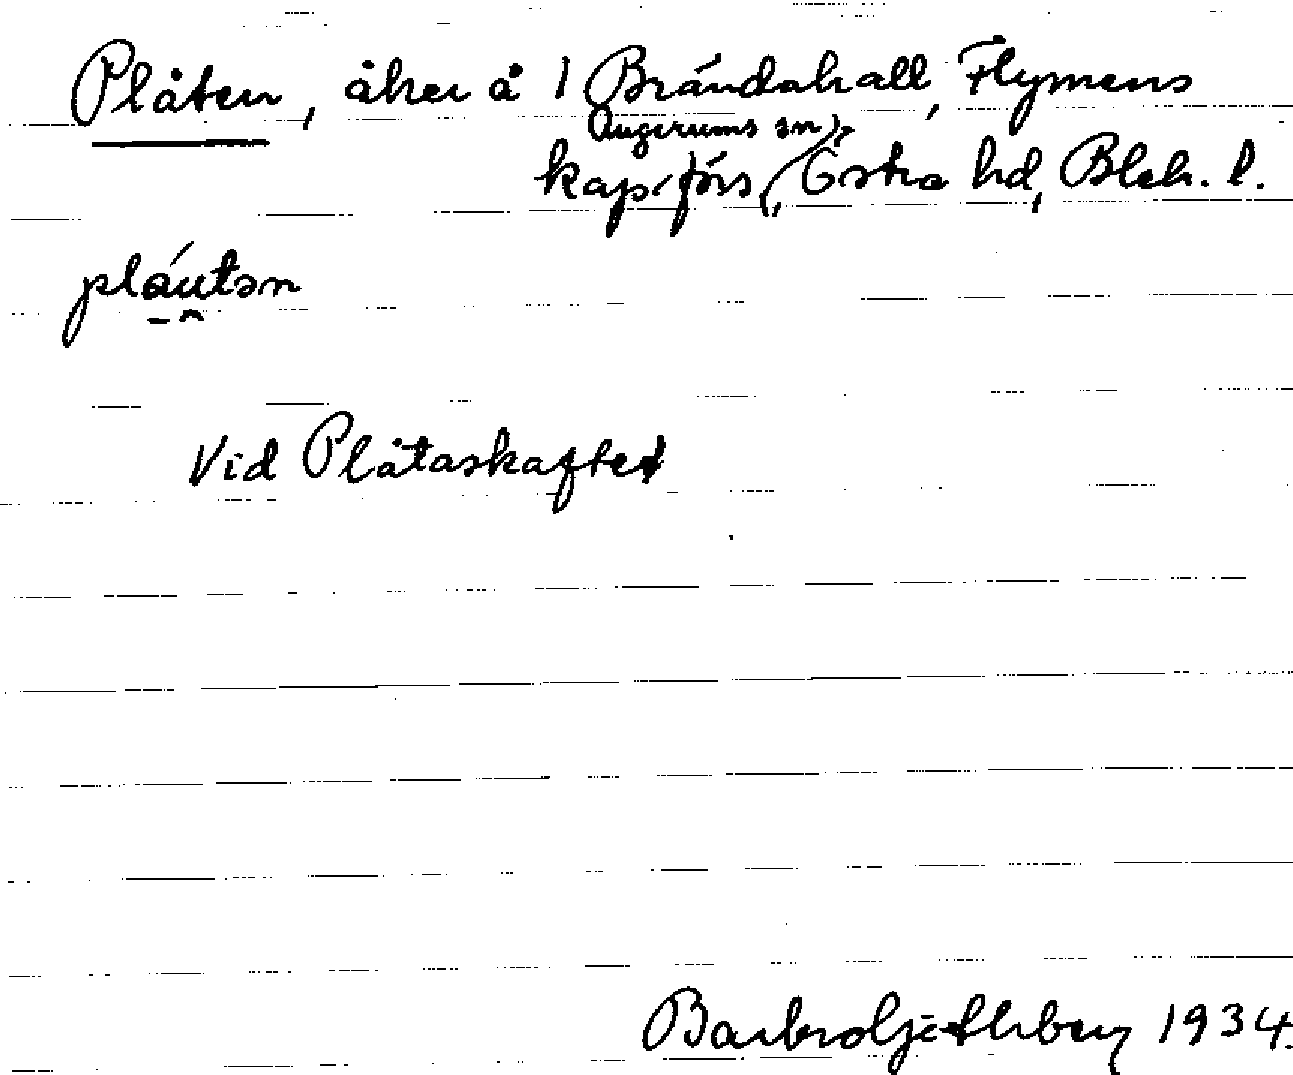 Plåten, åker å 1 Brändahall, Flymens
(Augerums sn),
kap.förs, Östra hd, Blek. l.
pláutən
Vid Plåtaskaftet
1934.